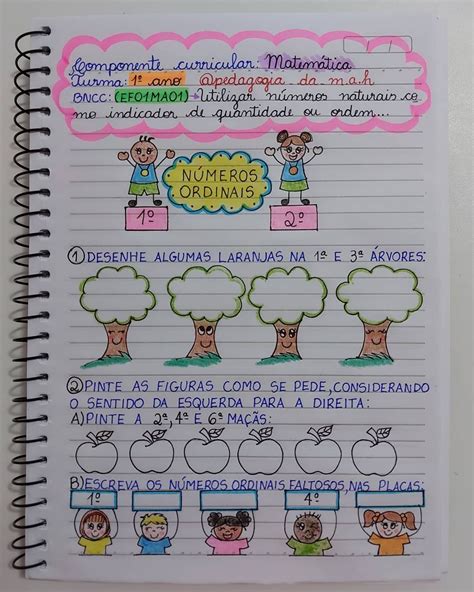 Componente curricular: Matemática
Turma: 1º ano @pedagogia da m.a.h
BNCC: (EF01MA01) Utilizar números naturais co
mo indicador de quantidade ou ordem...
NÚMEROS
ORDINAIS
1º
2º
1 DESENHE ALGUMAS LARANJAS NA 1ª E 3ª ÁRVORES:
2 PINTE AS FIGURAS COMO SE PEDE, CONSIDERANDO
O SENTIDO DA ESQUERDA PARA A DIREITA:
A) PINTE A 2ª, 4ª E 6ª MAÇÃS:
B) ESCREVA OS NÚMEROS ORDINAIS FALTOSOS, NAS PLACAS:
1º
4º